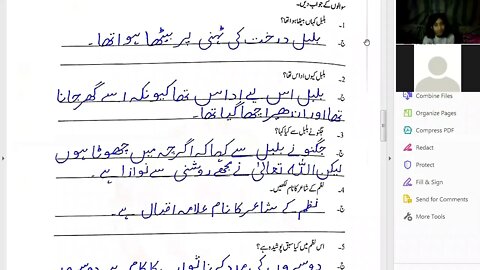 سوالوں کے جواب دیں۔
۱۔ بلبل کہاں بیٹھا ہوا تھا؟
ج۔ بلبل درخت کی ٹہنی پر بیٹھا ہوا تھا۔
۲۔ بلبل کیوں اداس تھا؟
ج۔ بلبل اس لیے اداس تھا کیونکہ اسے گھر جانا
تھا اور اندھیرا چھا گیا تھا۔
۳۔ جگنو نے بلبل سے کیا کہا؟
ج۔ جگنو نے بلبل سے کہا کہ اگرچہ میں چھوٹا ہوں
لیکن اللہ تعالیٰ نے مجھے روشنی سے نوازا ہے۔
۴۔ نظم کے شاعر کا نام لکھیں۔
ج۔ نظم کے شاعر کا نام علامہ اقبال ہے۔
۵۔ اس نظم میں کیا سبق پوشیدہ ہے؟
ج۔ دوسروں کی مدد کرنا
Combine Files
Organize Pages
Compress PDF
Redact
Protect
Fill & Sign
Send for Comments
More Tools